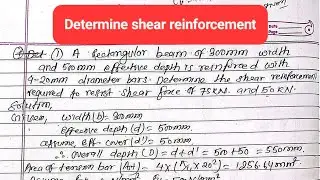 Determine shear reinforcement
(1) A Rectangular beam of 300mm width
and 500mm effective depth is reinforced with
4-20mm diameter bars. Determine the shear reinforcement
required to resist shear force of 75kN. and 50 KN.
Solution,
Given, width(b) = 300mm
effective depth(d) = 500mm,
assume, eff. cover(d') = 50mm
∴ overall depth(D) = d+d' = 500+50 = 550mm.
Area of tension bar (Ast) = 4×(π/4×20²) = 1,256.64mm²